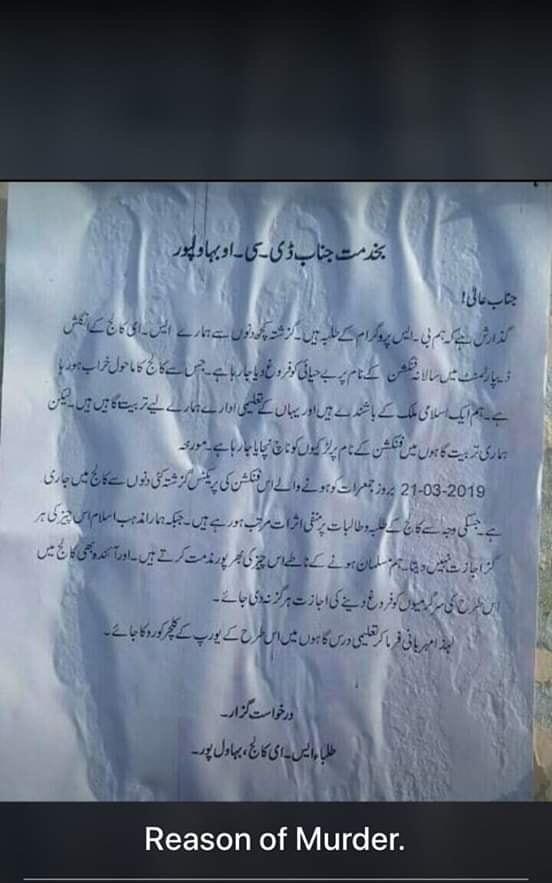 بخدمت جناب ڈی۔سی۔او بہاولپور
جناب عالی!
گذارش ہے کہ ہم بی۔ایس پروگرام کے طلبہ ہیں۔گزشتہ کچھ دنوں سے ہمارے ایس۔ای کالج کے انگلش
ڈیپارٹمنٹ میں سالانہ فنکشن کے نام پر بے حیائی کو فروغ دیا جا رہا ہے۔جس سے کالج کا ماحول خراب ہو رہا
ہے۔ہم ایک اسلامی ملک کے باشندے ہیں اور یہاں کے تعلیمی ادارے ہمارے لیے تربیت گاہیں ہیں۔لیکن
ہماری تربیت گاہوں میں فنکشن کے نام پر لڑکیوں کو ناچ نچایا جا رہا ہے۔مورخہ
21-03-2019 بروز جمعرات کو ہونے والے اس فنکشن کی پریکٹس گزشتہ کئی دنوں سے کالج میں جاری
ہے۔جسکی وجہ سے کالج کے طلبہ و طالبات پر منفی اثرات مرتب ہو رہے ہیں۔جبکہ ہمارا مذہب اسلام اس چیز کی ہر
گز اجازت نہیں دیتا۔ہم مسلمان ہونے کے ناطے اس چیز کی بھرپور مذمت کرتے ہیں۔اور آئندہ بھی کالج میں
اس طرح کی سرگرمیوں کو فروغ دینے کی اجازت ہرگز نہ دی جائے۔
لہذا مہربانی فرما کر تعلیمی درس گاہوں میں اس طرح کے یورپ کے کلچر کو روکا جائے۔
درخواست گزار۔
طلباء ایس۔ای کالج، بہاول پور۔
Reason of Murder.